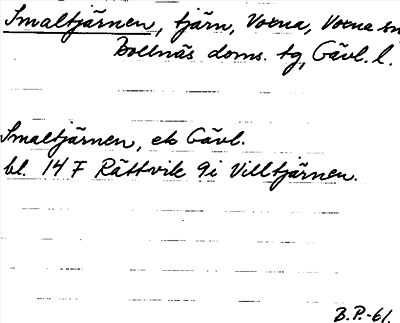 Smaltjärnen, tjärn, Voxna, Voxna sn
Bollnäs doms. tg, Gävl. l.
Smaltjärnen, ek Gävl.
bl. 14 F Rättvik 9i Villtjärnen.
B.P.-61.